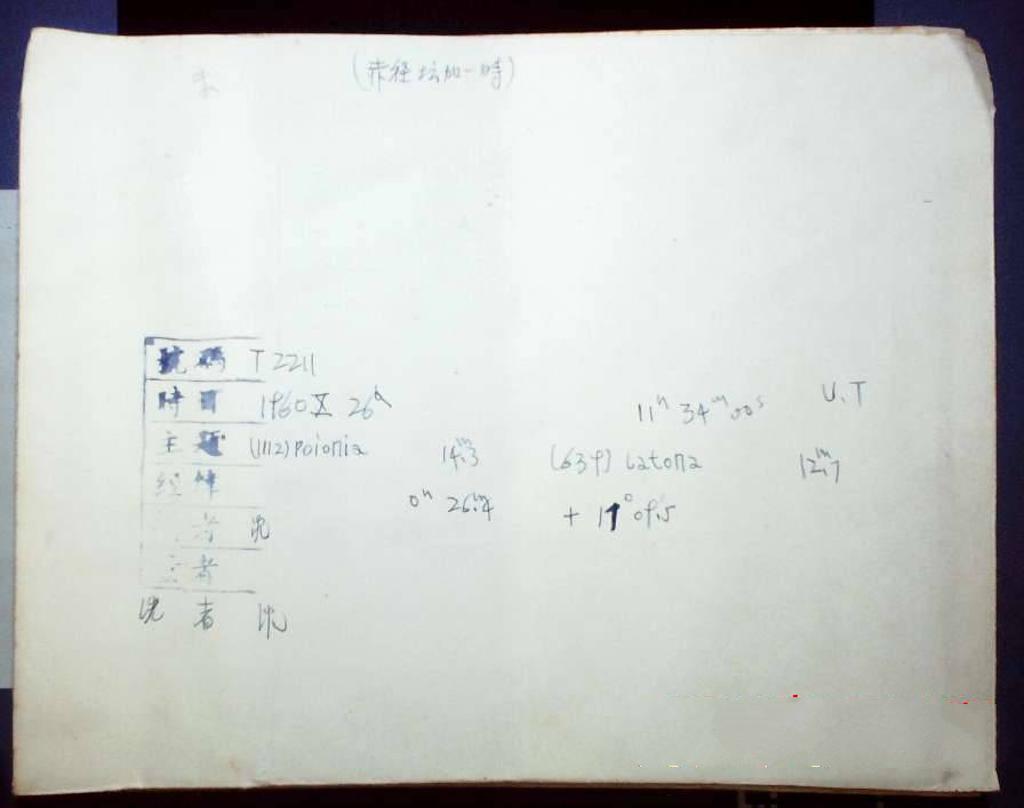 (赤经坛加一時)
號碼 T 2211
時間 1960 X 26ᵈ 11ʰ 34ᵐ 00ˢ U.T
主題 (1112) Polonia 14ᵐ.3 (639) Latona 12ᵐ.7
經緯 0ʰ 26ᵐ.4 + 11° 09.5
者 沈
者
洗者 沈